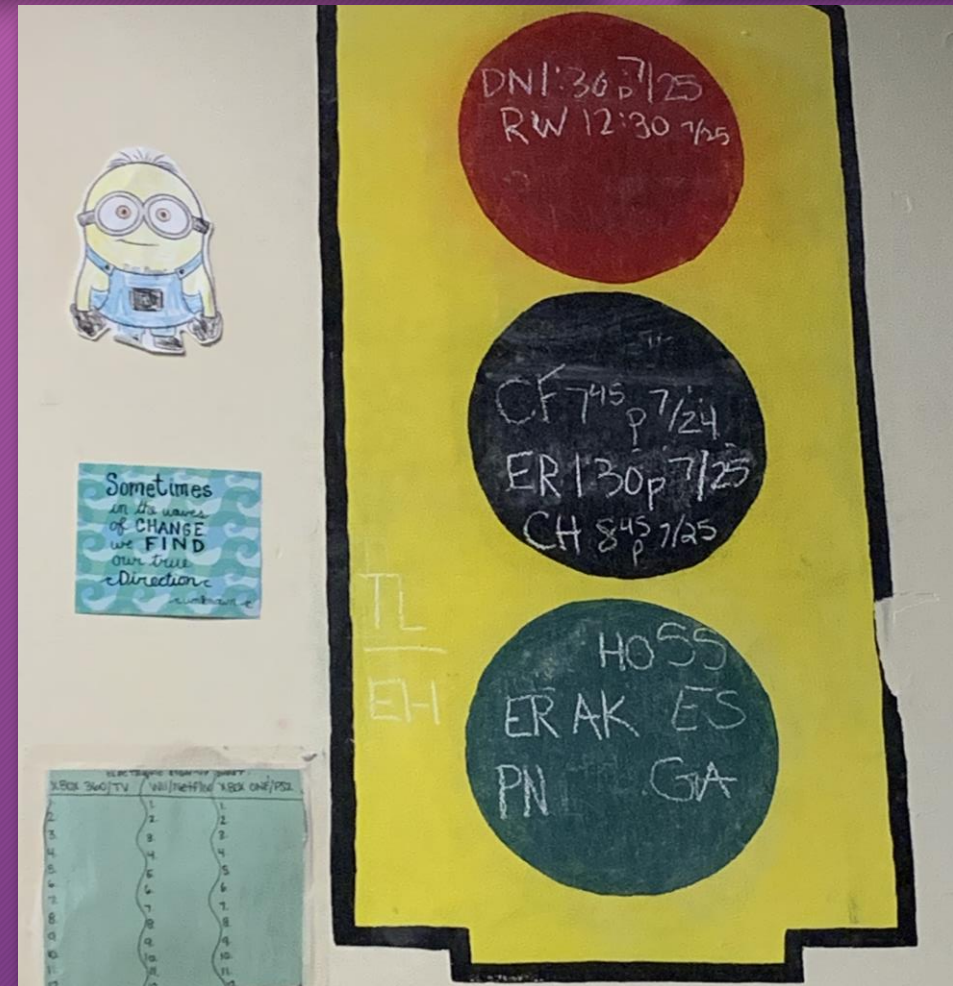 DN 1:30 p 7/25
RW 12:30 7/25
CF 7 45 p 7/24
ER 1:30p 7/25
CH 8 45 p 7/25
TL
EH
HO SS
ER AK ES
PN GA
Sometimes
in the waves
of CHANGE
we FIND
our true
Direction
unknown
SHEET
XBOX 360/TV Wii/Netflix XBOX ONE/PS2
1. 1.
2. 2. 2
3. 3. 3.
4. 4. 4
5. 5. 5
6. 6. 6
7. 7. 7.
8. 8 8
9. 9. 9.
10. 10. 10.
11. 11. 11.